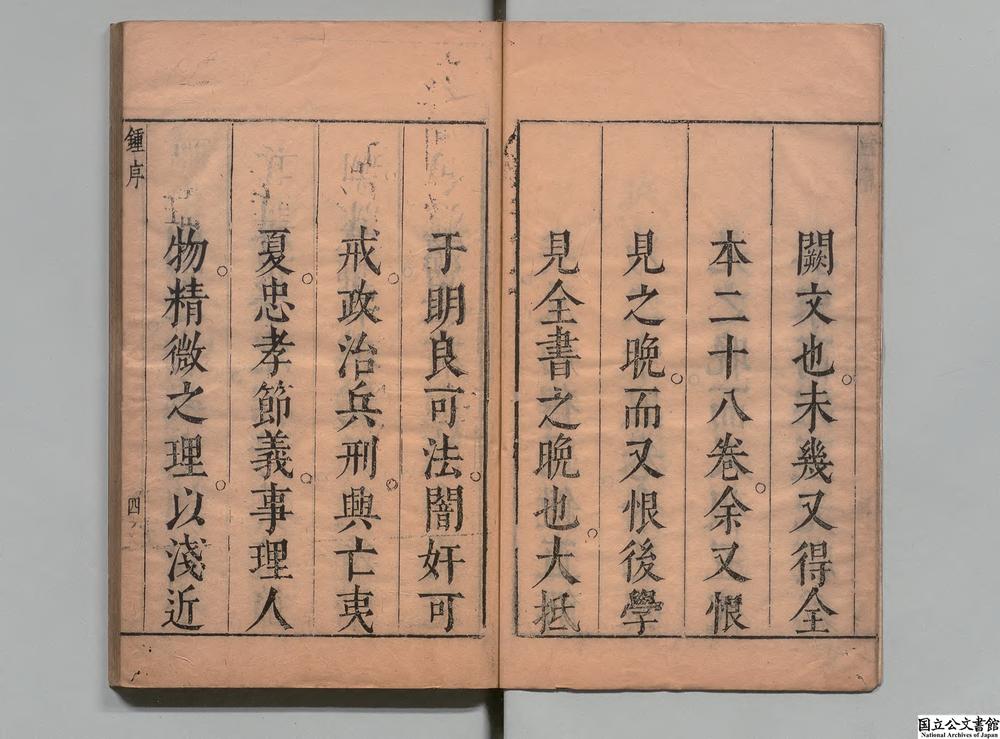 闕文也。未幾又得全
本二十八卷。余又恨
見之晚。而又恨後學
見全書之晚也。大抵
于明良可法。闇奸可
戒。政治兵刑。興亡夷
夏。忠孝節義。事理人
物。精微之理。以淺近
鍾序
四
国立公文書館
National Archives of Japan